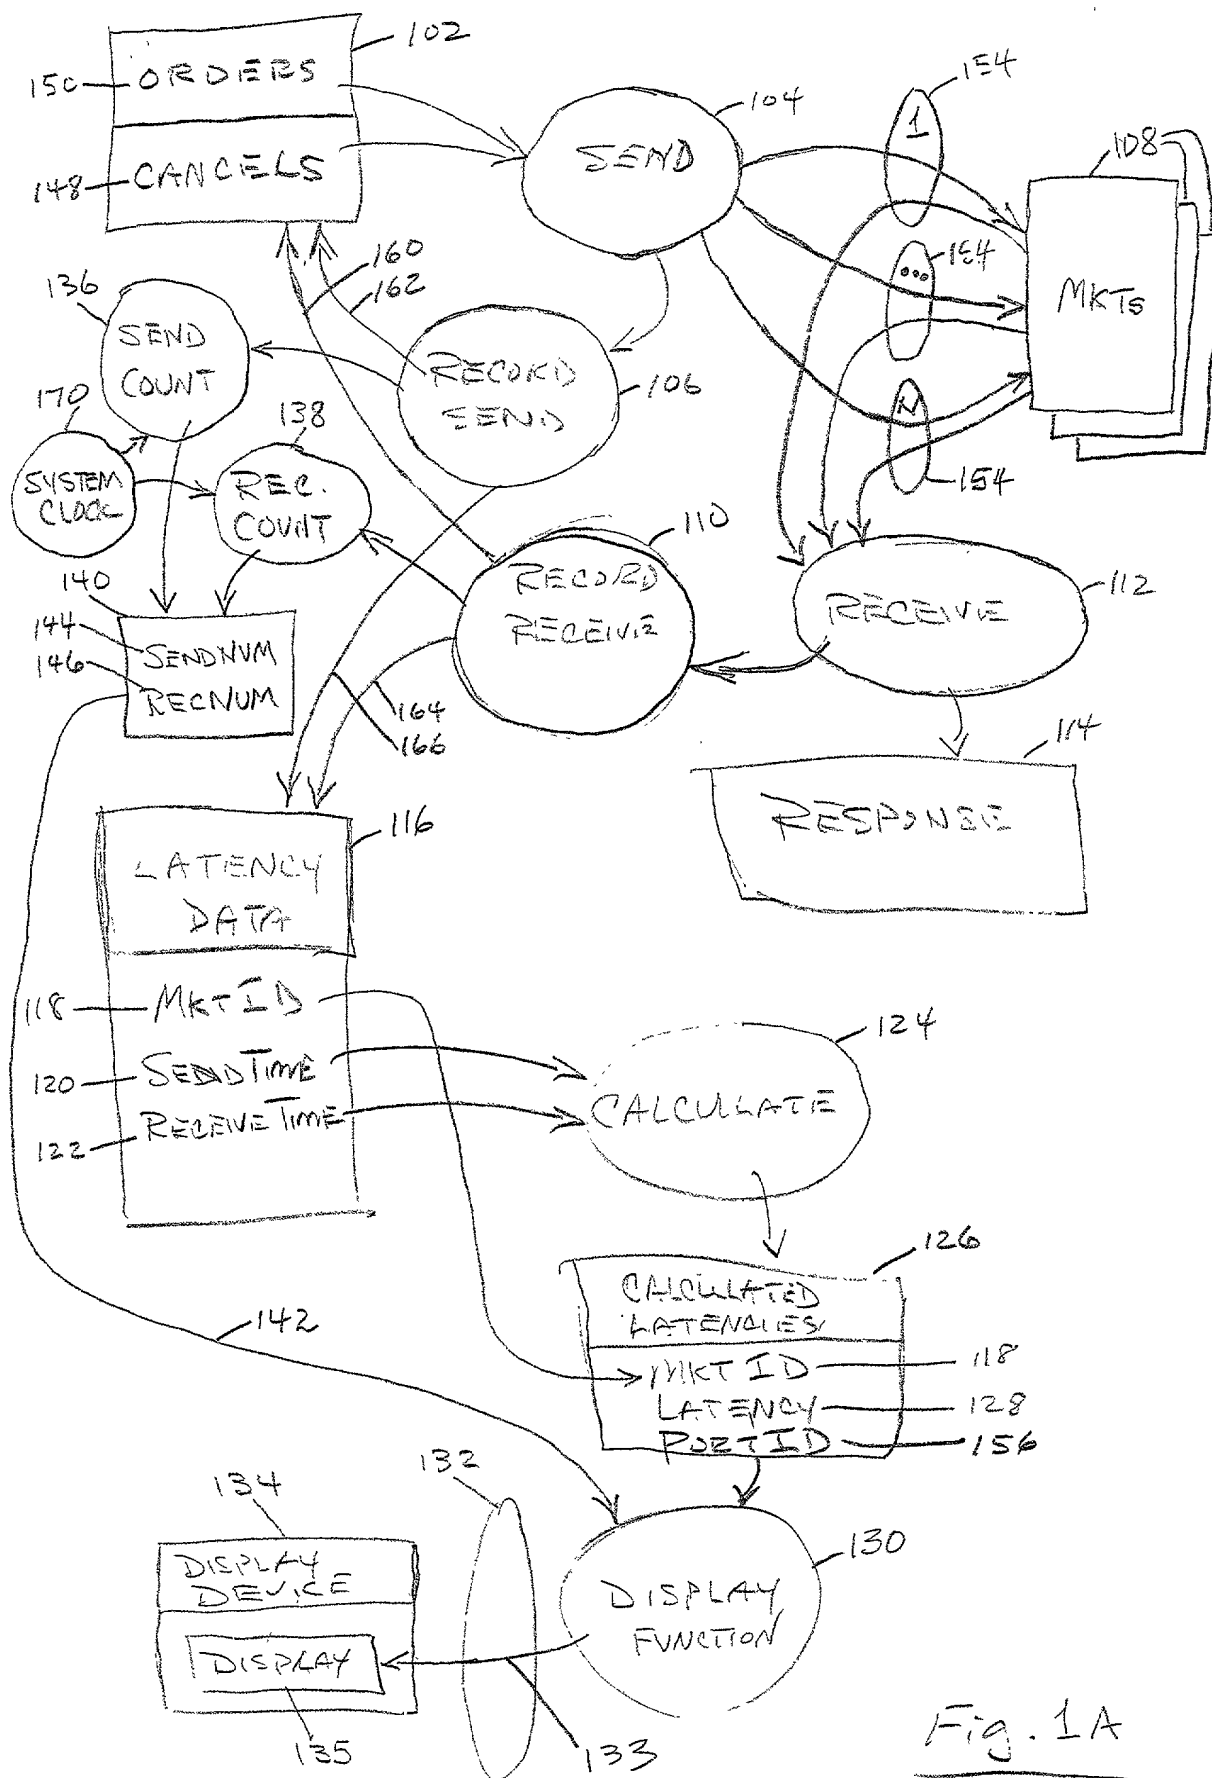 102
150 ORDERS
148 CANCELS
104
SEND
154
1
108
MKTS
154
...
N
154
160
162
136
SEND
COUNT
RECORD
SEND
106
170
SYSTEM
CLOCK
138
REC.
COUNT
110
RECORD
RECEIVE
112
RECEIVE
140
144
146
SENDNUM
RECNUM
164
166
114
RESPONSE
116
LATENCY
DATA
118 MKT ID
120 SENDTIME
122 RECEIVETIME
124
CALCULATE
126
CALCULATED
LATENCIES
MKT ID 118
LATENCY 128
PORT ID 156
142
132
134
DISPLAY
DEVICE
DISPLAY
135
133
130
DISPLAY
FUNCTION
Fig. 1A